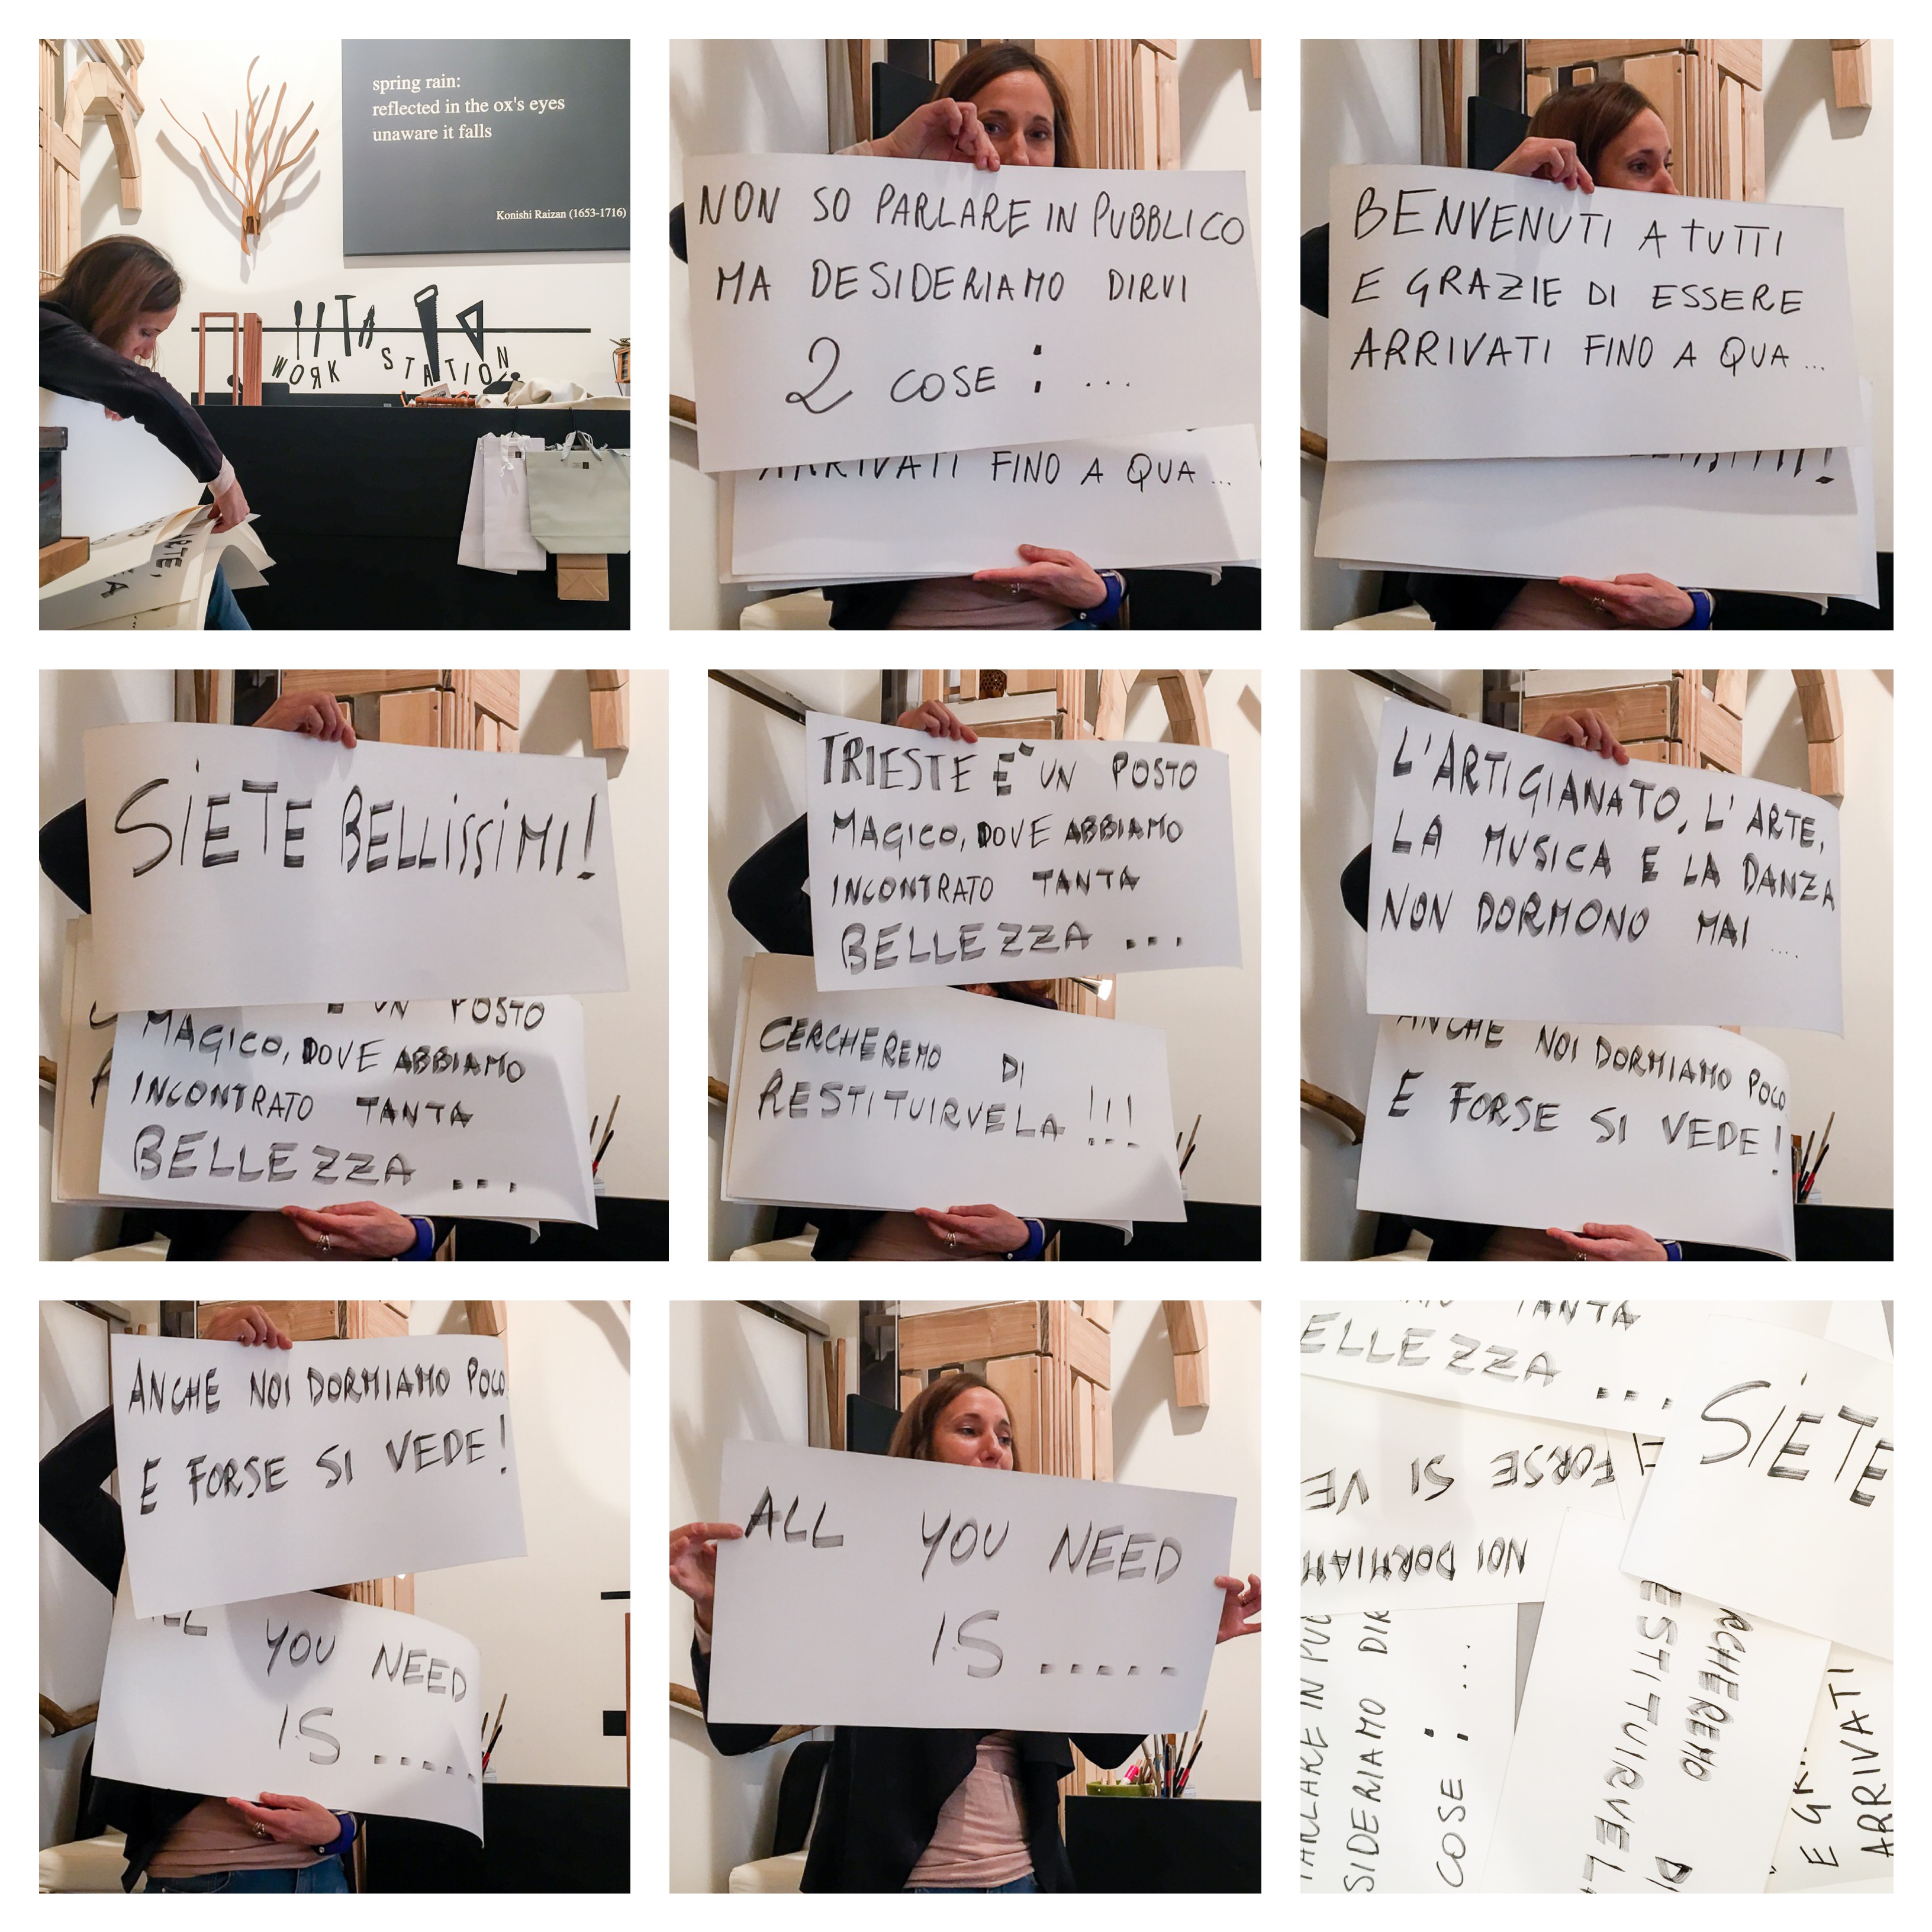 spring rain:
reflected in the ox's eyes
unaware it falls
Konishi Raizan (1653-1716)
WORK STATION
ARTE,
A
NON SO PARLARE IN PUBBLICO
MA DESIDERIAMO DIRVI
2 COSE : ...
ARRIVATI FINO A QUA ...
BENVENUTI A TUTTI
E GRAZIE DI ESSERE
ARRIVATI FINO A QUA ...
SIETE BELLISSIMI!
È UN POSTO
MAGICO, DOVE ABBIAMO
INCONTRATO TANTA
BELLEZZA ...
TRIESTE È UN POSTO
MAGICO, DOVE ABBIAMO
INCONTRATO TANTA
BELLEZZA ...
CERCHEREMO DI
RESTITUIRVELA !!!
L'ARTIGIANATO, L'ARTE,
LA MUSICA E LA DANZA
NON DORMONO MAI ....
ANCHE NOI DORMIAMO POCO
E FORSE SI VEDE!
ANCHE NOI DORMIAMO POCO
E FORSE SI VEDE!
ALL YOU NEED
IS .....
ALL YOU NEED
IS .....
TANTA
ELLEZZA ...
SIETE
E FORSE SI VE
NOI DORMIAM
PARLARE IN PUB
SIDERIAMO DIR
COSE : ....
RCHEREMO DI
ESTITUIRVEL
E GR
ARRIVATI